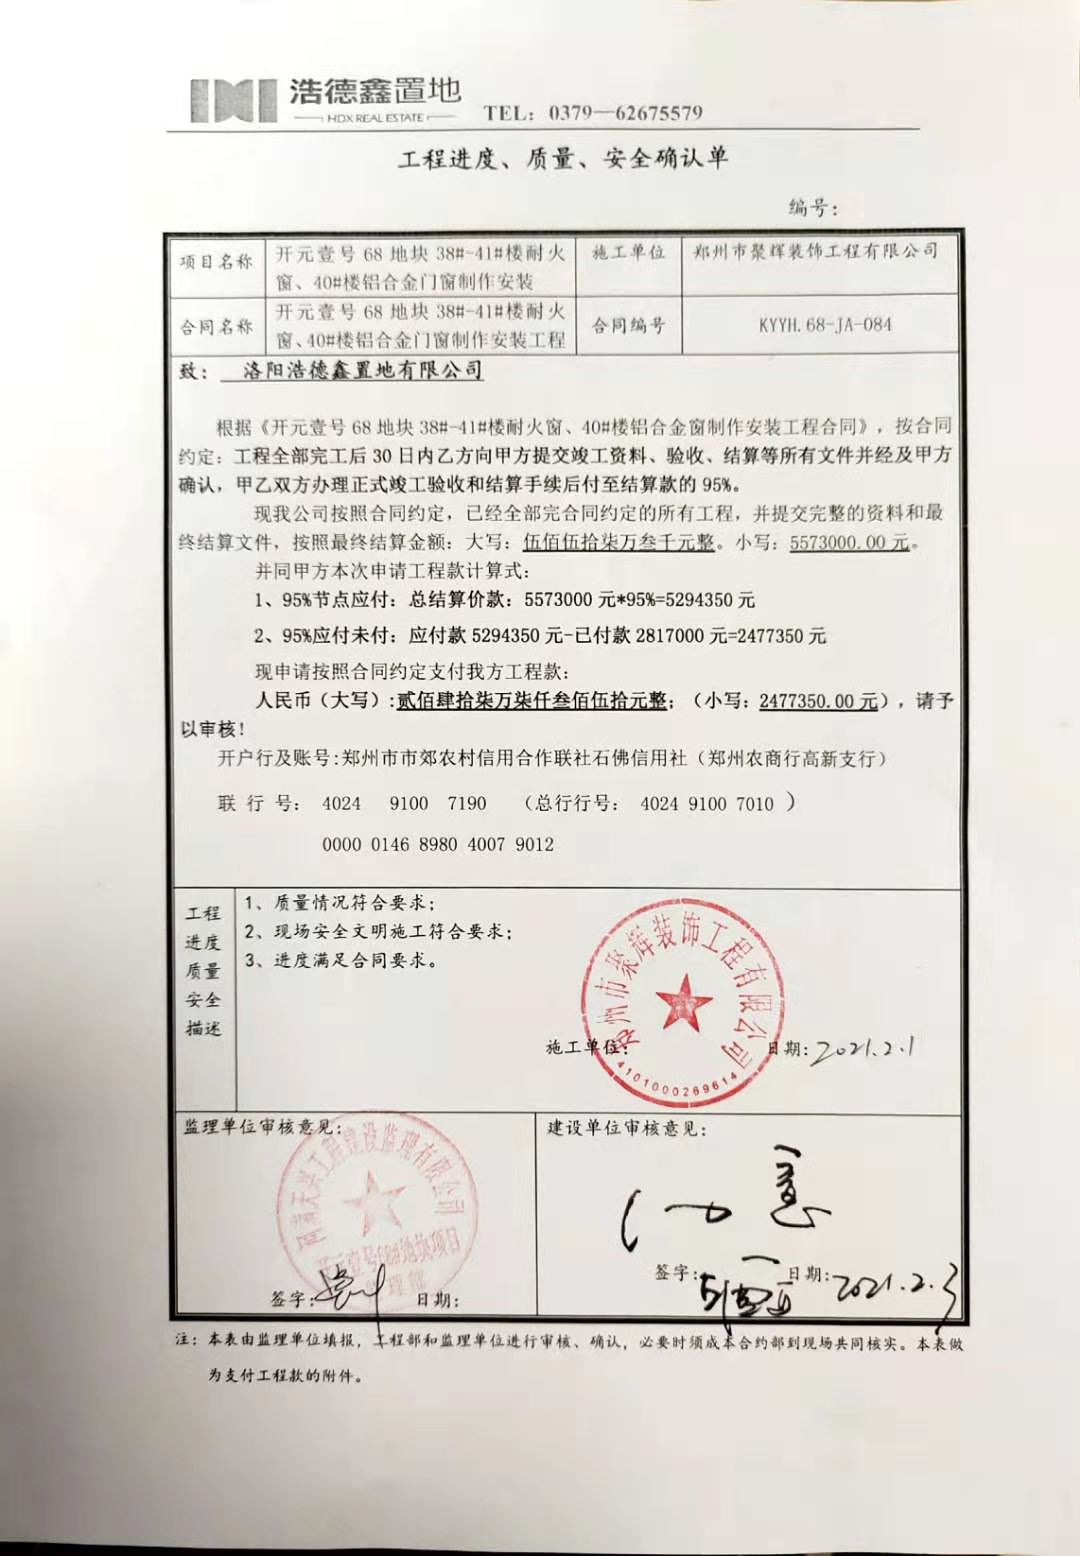 浩德鑫置地
HDX REAL ESTATE
TEL：0379—62675579
工程进度、质量、安全确认单
编号：
项目名称
开元壹号 68 地块 38#-41#楼耐火
窗、40#楼铝合金门窗制作安装
施工单位
郑州市聚辉装饰工程有限公司
合同名称
开元壹号 68 地块 38#-41#楼耐火
窗、40#楼铝合金门窗制作安装工程
合同编号
KYYH.68-JA-084
致： 洛阳浩德鑫置地有限公司
根据《开元壹号 68 地块 38#-41#楼耐火窗、40#楼铝合金窗制作安装工程合同》，按合同
约定：工程全部完工后 30 日内乙方向甲方提交竣工资料、验收、结算等所有文件并经及甲方
确认，甲乙双方办理正式竣工验收和结算手续后付至结算款的 95%。
现我公司按照合同约定，已经全部完合同约定的所有工程，并提交完整的资料和最
终结算文件，按照最终结算金额：大写：伍佰伍拾柒万叁千元整。小写：5573000.00 元。
并同甲方本次申请工程款计算式：
1、95%节点应付：总结算价款：5573000 元*95%=5294350 元
2、95%应付未付：应付款 5294350 元-已付款 2817000 元=2477350 元
现申请按照合同约定支付我方工程款：
人民币（大写）:贰佰肆拾柒万柒仟叁佰伍拾元整；（小写：2477350.00 元），请予
以审核！
开户行及账号:郑州市市郊农村信用合作联社石佛信用社（郑州农商行高新支行）
联 行 号： 4024 9100 7190 （总行行号： 4024 9100 7010 ）
0000 0146 8980 4007 9012
工程
进度
质量
安全
描述
1、质量情况符合要求；
2、现场安全文明施工符合要求；
3、进度满足合同要求。
郑州市聚辉装饰工程有限公司
4101000269614
施工单位：
日期：2021.2.1
监理单位审核意见：
工程建设监理有限公司
开元壹号68#地块项目
监理部
签字：
日期：
建设单位审核意见：
签字：
日期：2021.2.3
注：本表由监理单位填报，工程部和监理单位进行审核、确认，必要时须成本合约部到现场共同核实。本表做
为支付工程款的附件。